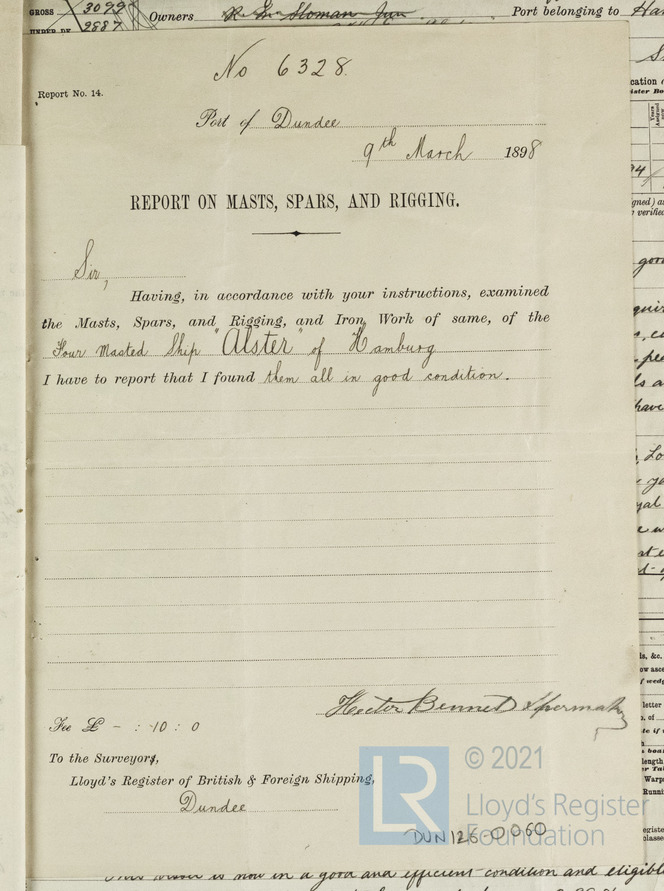 GROSS 3099
UNDER DK 2887
Owners R. M. Sloman Jun
Port belonging to Ha
No 6328
Report No. 14.
Port of Dundee
9th March 1898
REPORT ON MASTS, SPARS, AND RIGGING.
Sir,
Having, in accordance with your instructions, examined
the Masts, Spars, and Rigging, and Iron Work of same, of the
Four Masted Ship "Alster" of Hamburg
I have to report that I found them all in good condition.
Hector Bennet Sparmaker
Fee £ - : 10 : 0
To the Surveyors,
Lloyd's Register of British & Foreign Shipping,
Dundee
LR
© 2021
Lloyd's Register
Foundation
DUN126-0060
is now in a good and efficient condition and eligible